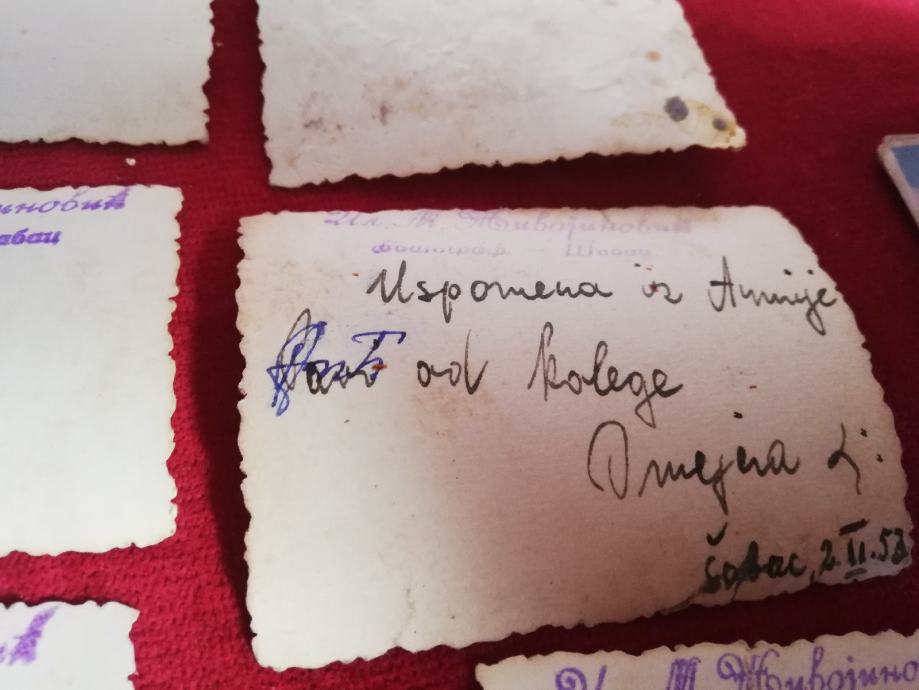 иновић
абац
Ил. М. Живојиновић
фотограф — Шабац
Uspomena iz Armije
od kolege
Omejera Lj.
Šabac, 2.II.53
М. Живојино